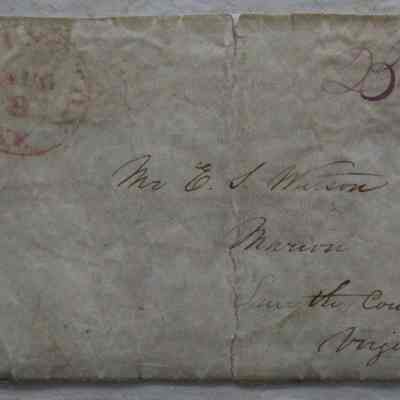 AUG
25
Mr E. S. Watson
Marion
Smyth Cou
Virgi